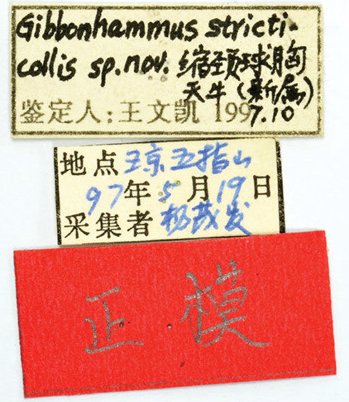 Gibbonhammus stricti-
collis sp. nov. 缩颈球胸
天牛（新属）
鉴定人：王文凯 1997.10
地点 琼五指山
97年5月19日
采集者 杨茂发
正模